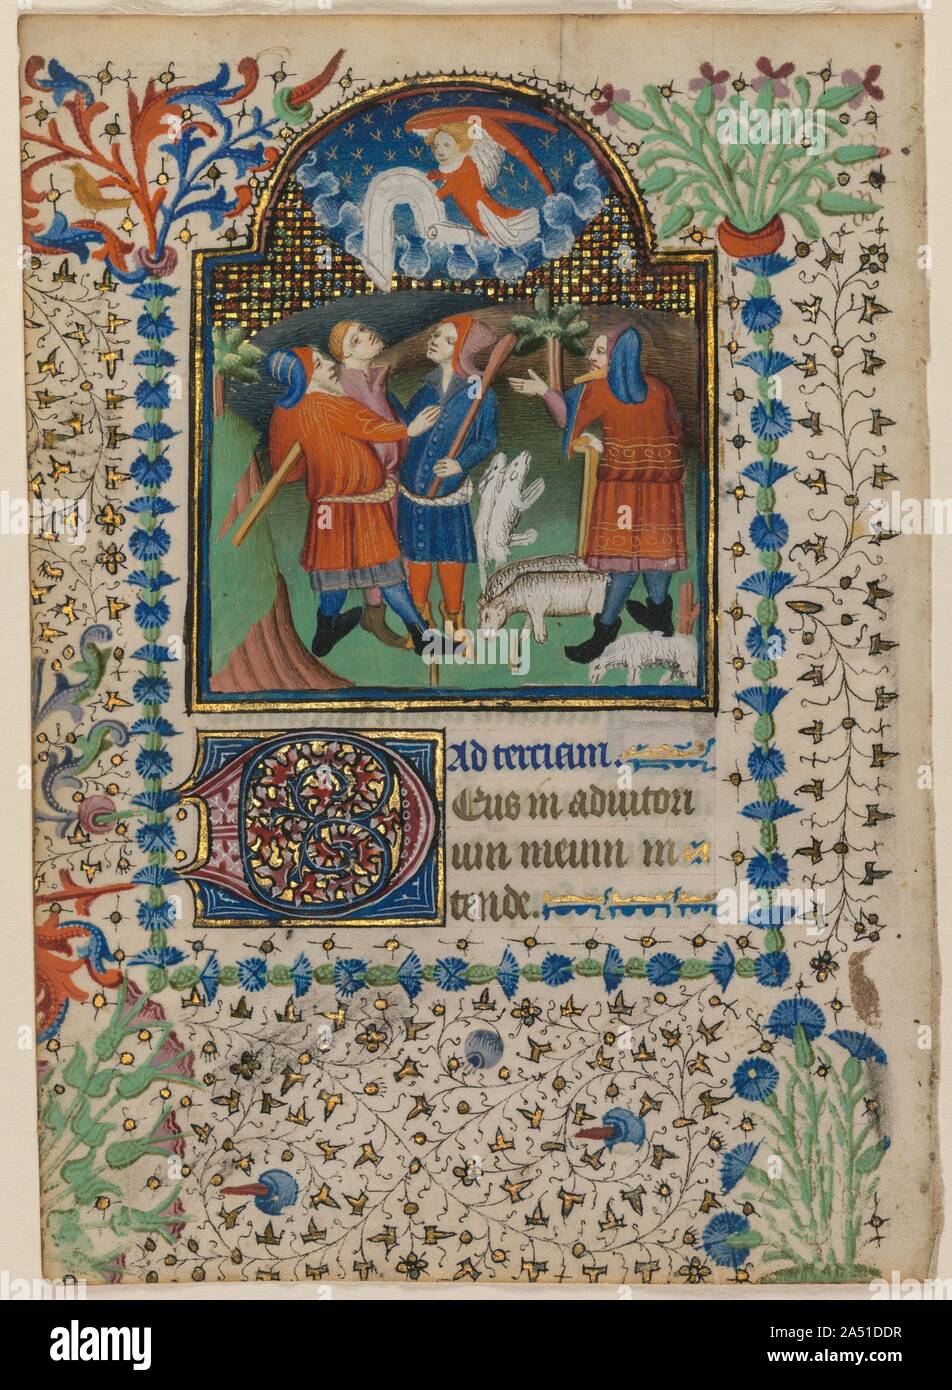 Ad terciam.
Deus in adiutori
um meum in
tende.
alamy
Image ID: 2A51DDR
www.alamy.com